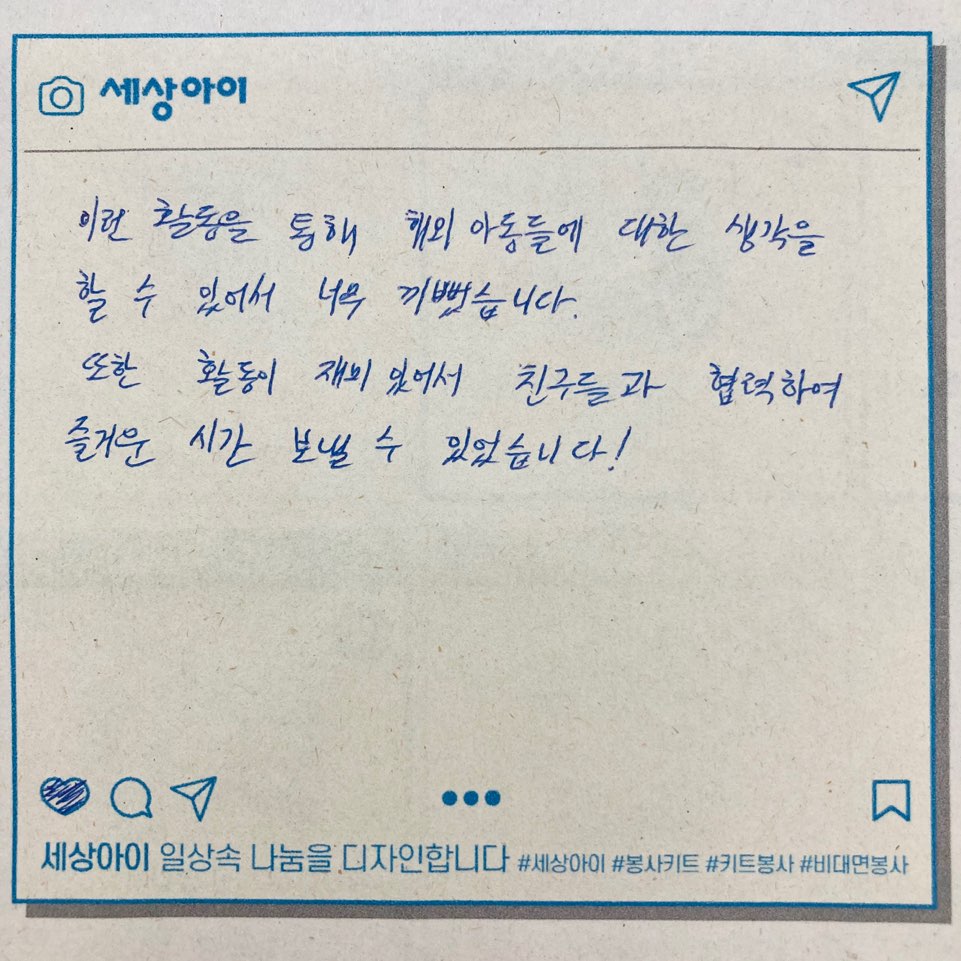 세상아이
이런 활동을 통해 해외 아동들에 대한 생각을
할 수 있어서 너무 기뻤습니다.
또한 활동이 재미 있어서 친구들과 협력하여
즐거운 시간 보낼 수 있었습니다!
세상아이 일상속 나눔을 디자인합니다 #세상아이 #봉사키트 #키트봉사 #비대면봉사